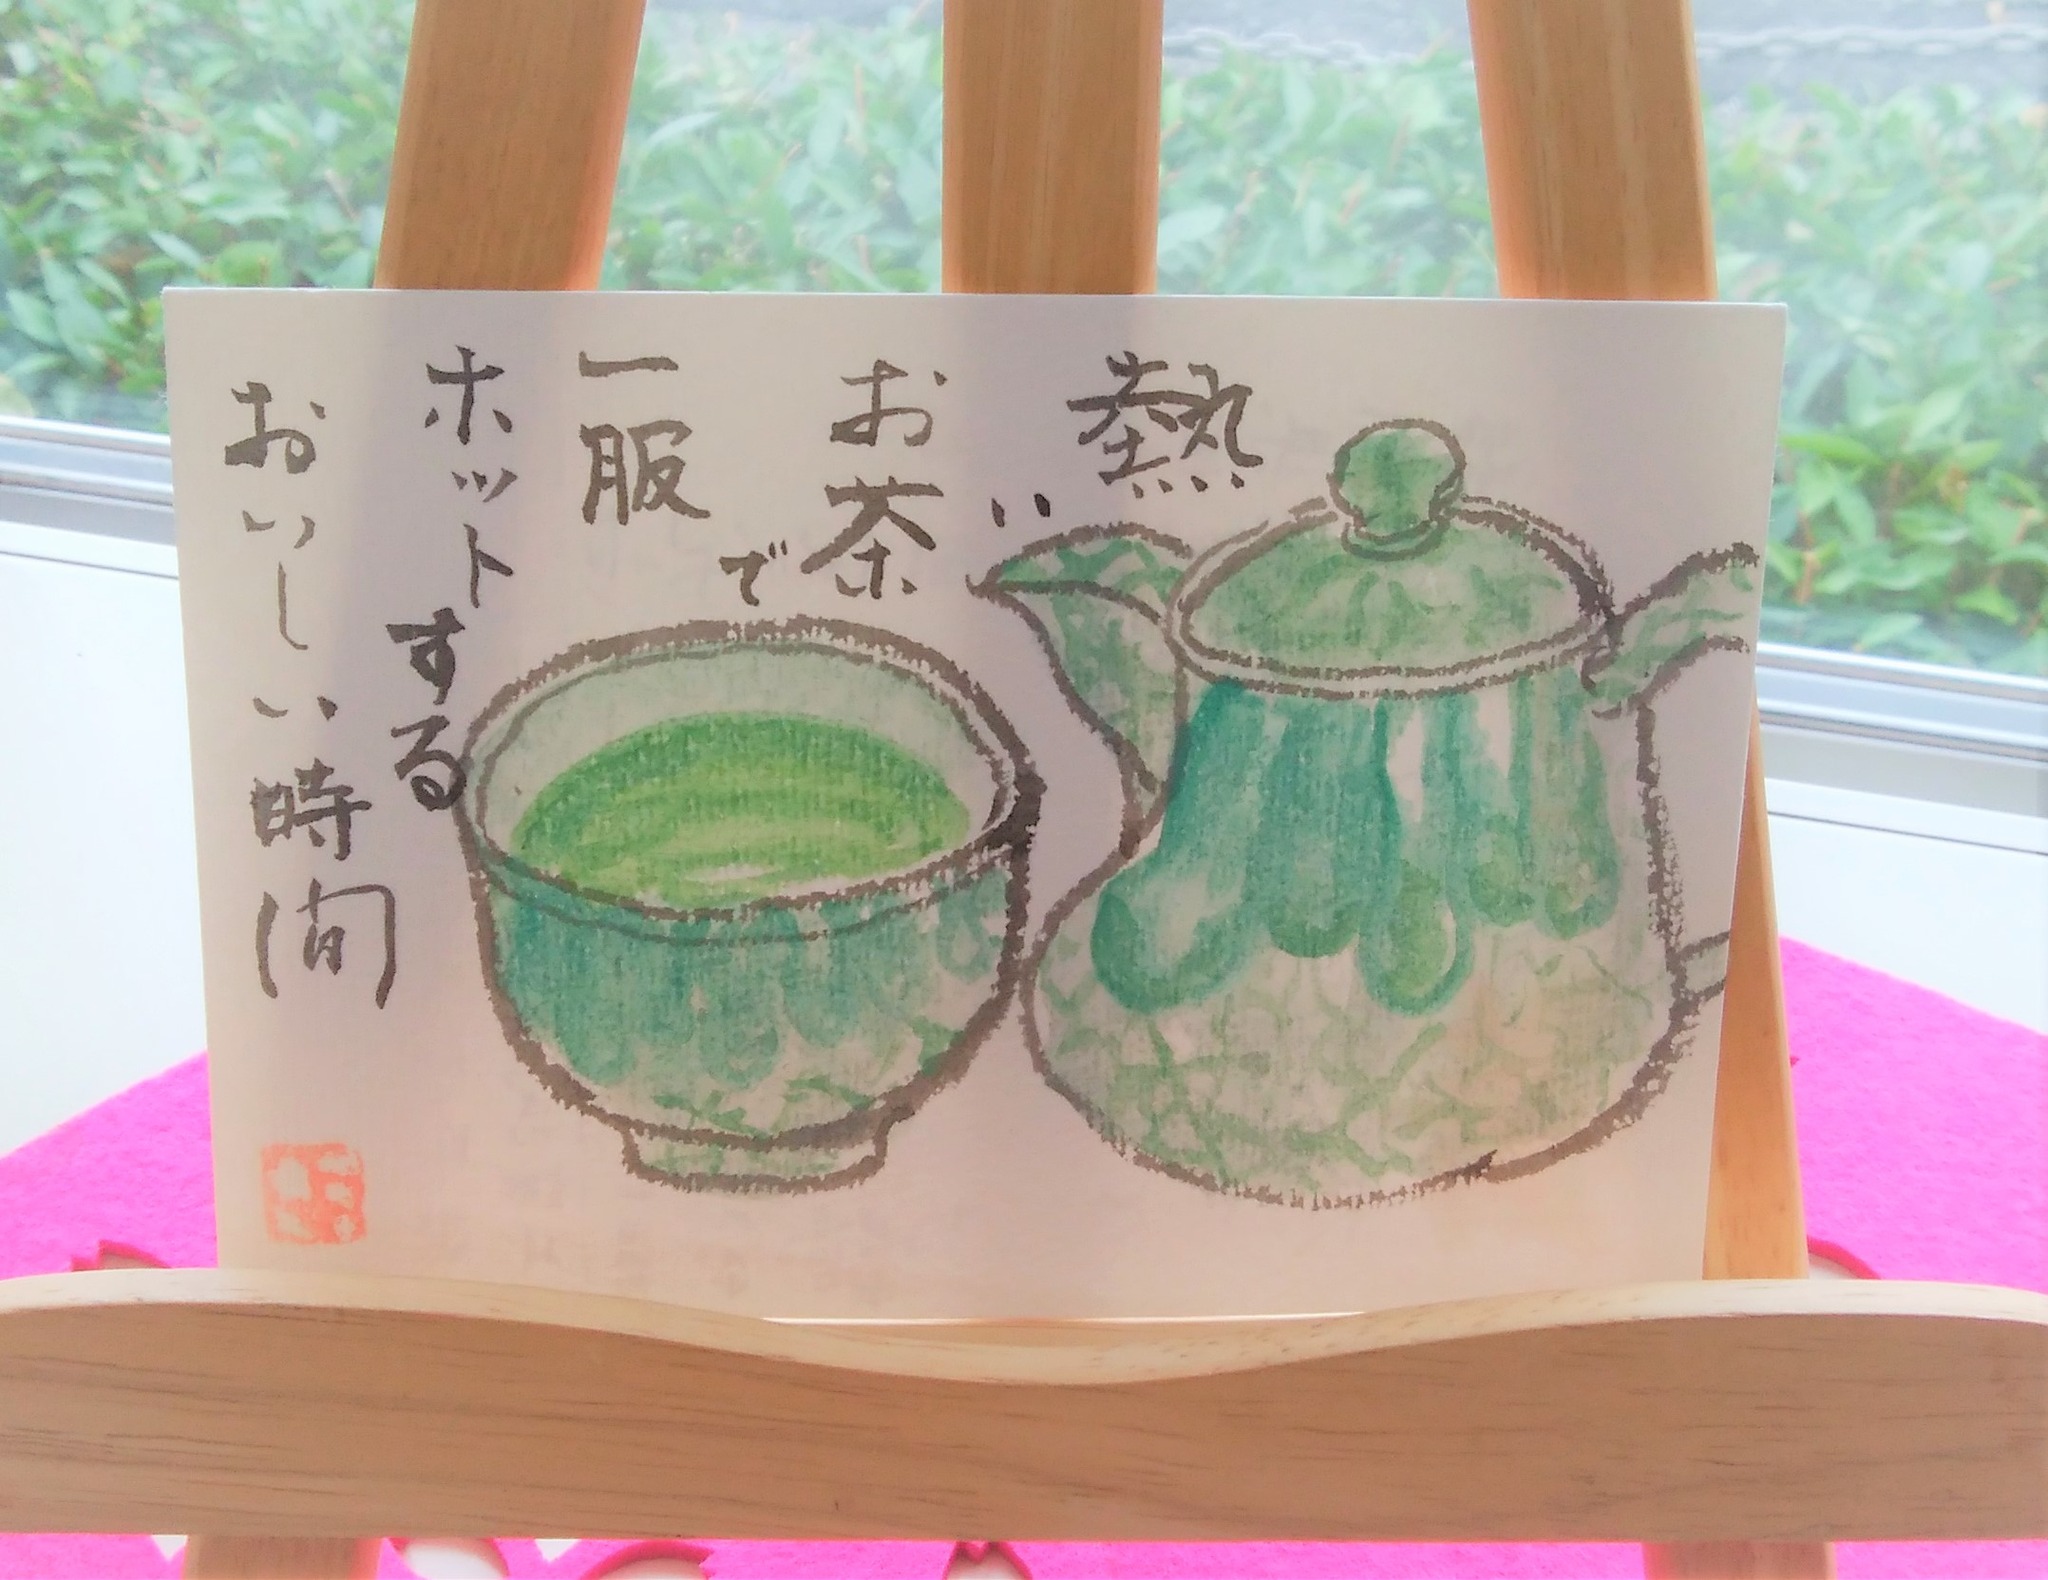 熱い
お茶で
一服
ホットする
おいしい時間